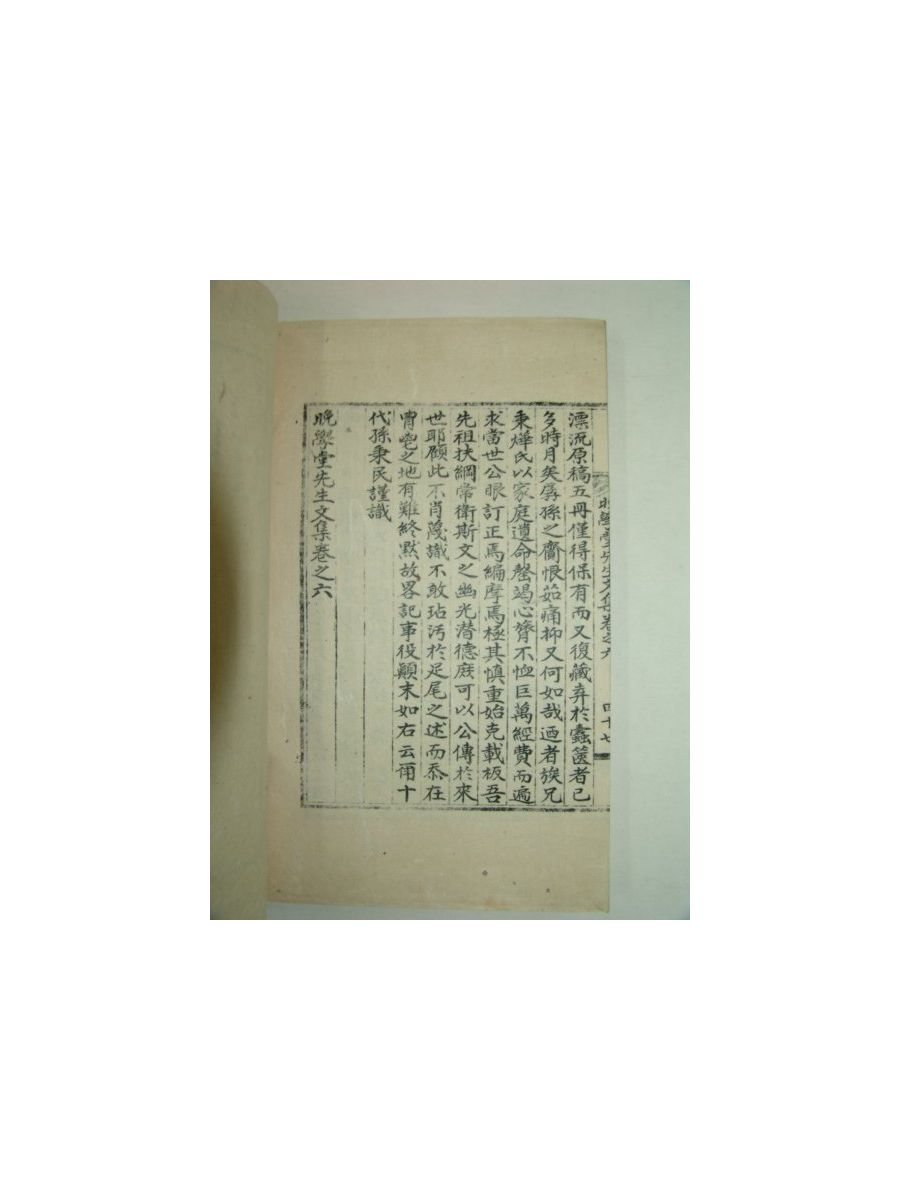 漂流原稿五冊僅得保有而又復藏弆於蠹篋者已
多時月矣孱孫之齎恨茹痛抑又何如哉迺者族兄
秉燁氏以家庭遺命罄竭心膂不恤巨萬經費而遍
求當世公眼訂正焉編摩焉極其愼重始克載板吾
先祖扶綱常衛斯文之幽光潛德庶可以公傳於來
世耶顧此不肖蔑識不敢玷汚於足尾之述而忝在
冑裔之地有難終默故畧記事役顚末如右云爾十
代孫秉民謹識
晩學堂先生文集卷之六
晩學堂先生文集卷之六 四十七